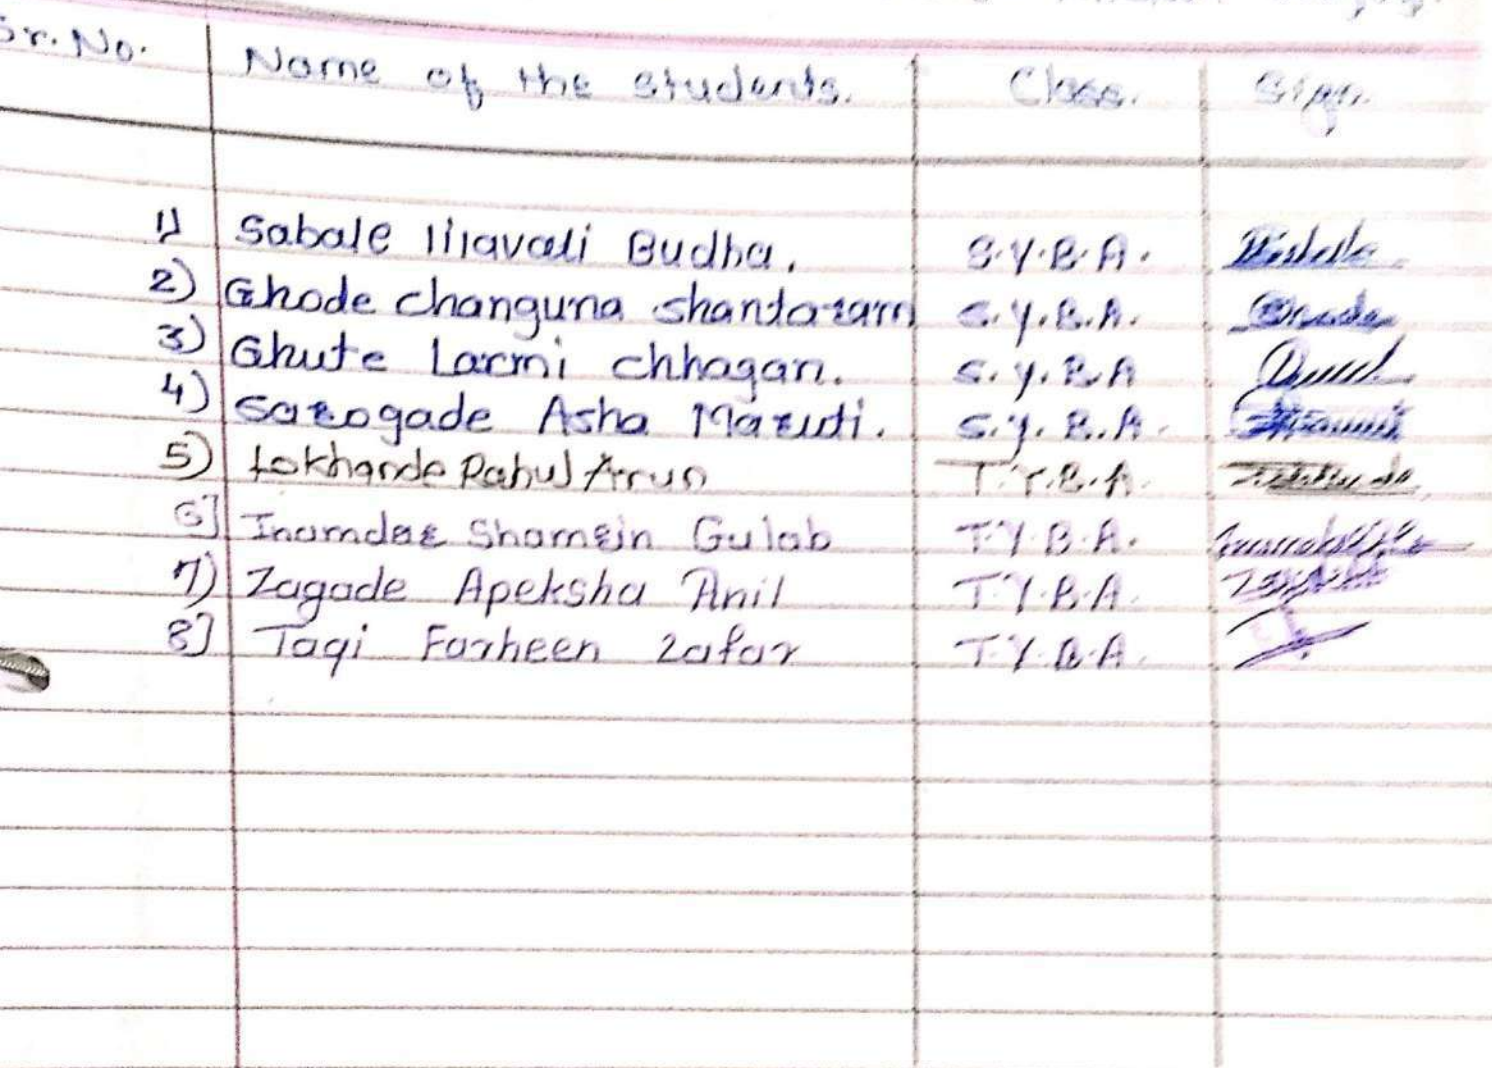 Sr. No. Name of the Students. Class. Sign.
1) Sabale lilavati Budha. S.Y.B.A.
2) Ghode changuna shantaram S.Y.B.A.
3) Ghute Laxmi chhagan. S.Y.B.A
4) Sarogade Asha Maruti. S.Y.B.A.
5) Lokhande Rahul Arun T.Y.B.A.
6] Inamdar Shamein Gulab T.Y.B.A.
7) Zagade Apeksha Anil T.Y.B.A.
8] Taqi Farheen Zafar T.Y.B.A.